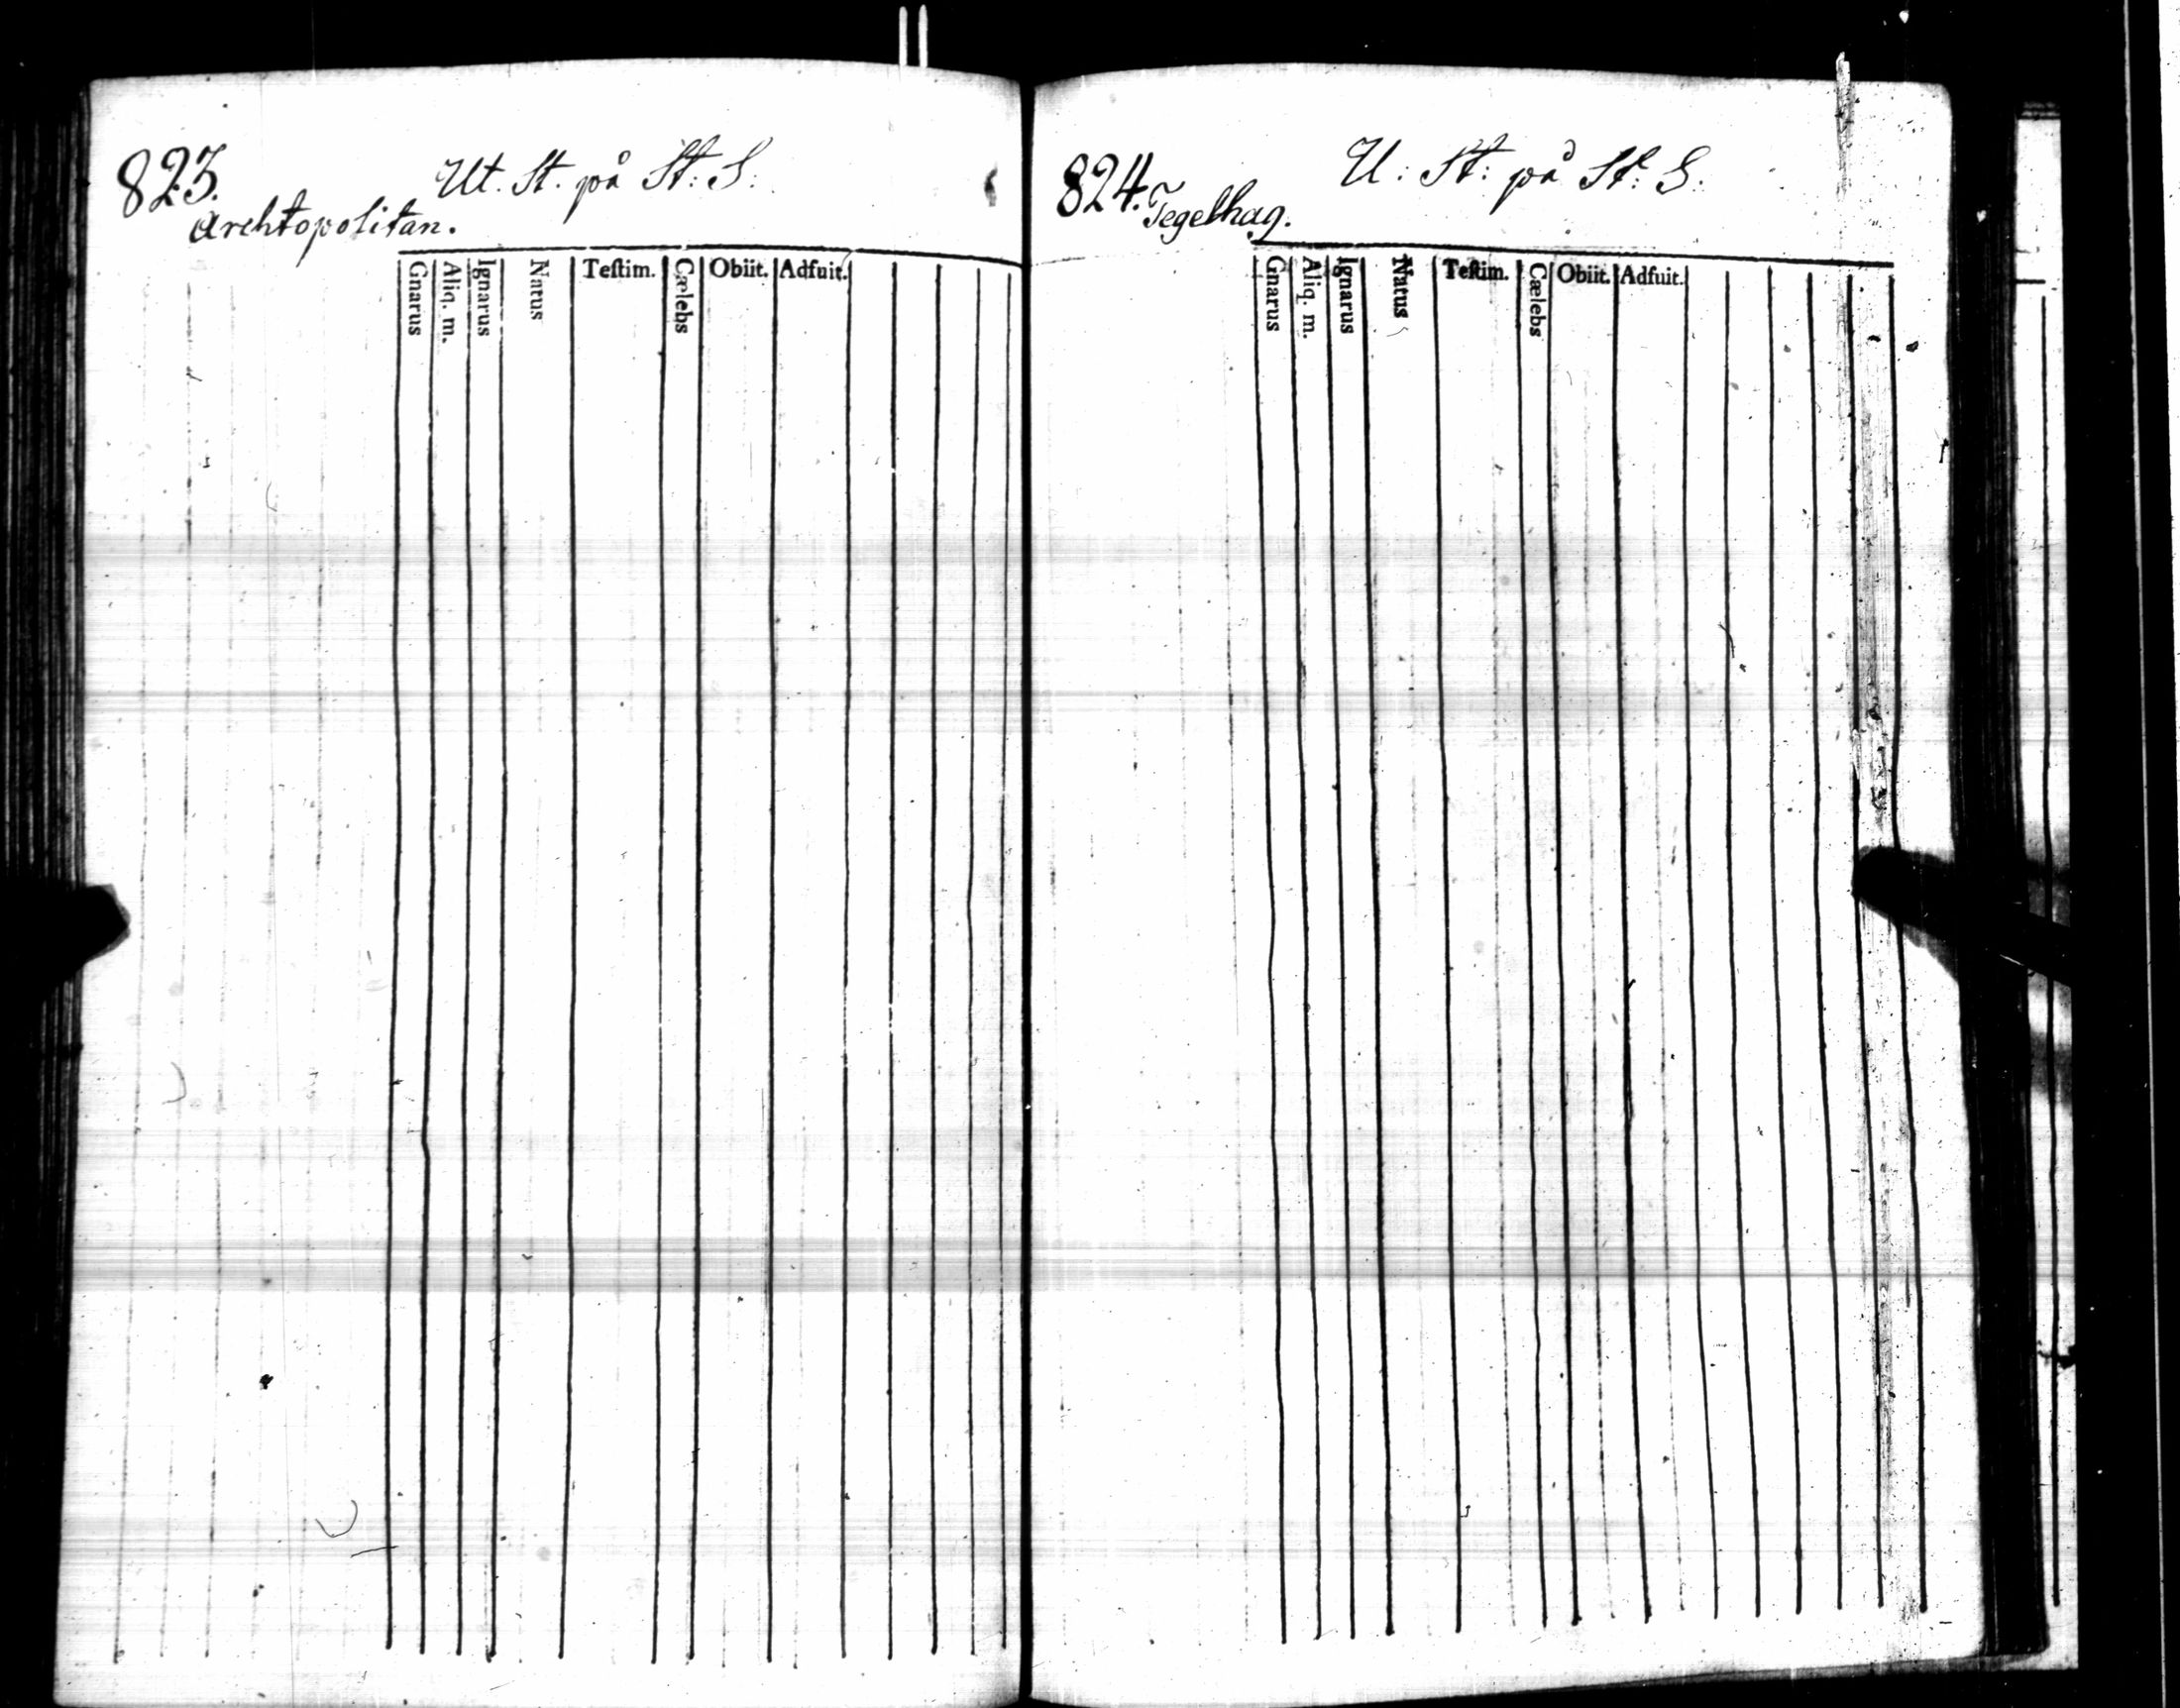 823. Ut. St. på St: S:
Archtopolitan.
Gnarus Aliq. m. Ignarus Natus Teſtim. Cælebs Obiit. Adfuit.
824. U: St: på St: S.
Tegelhag.
Gnarus Aliq. m. Ignarus Natus Teſtim. Cælebs Obiit. Adfuit.